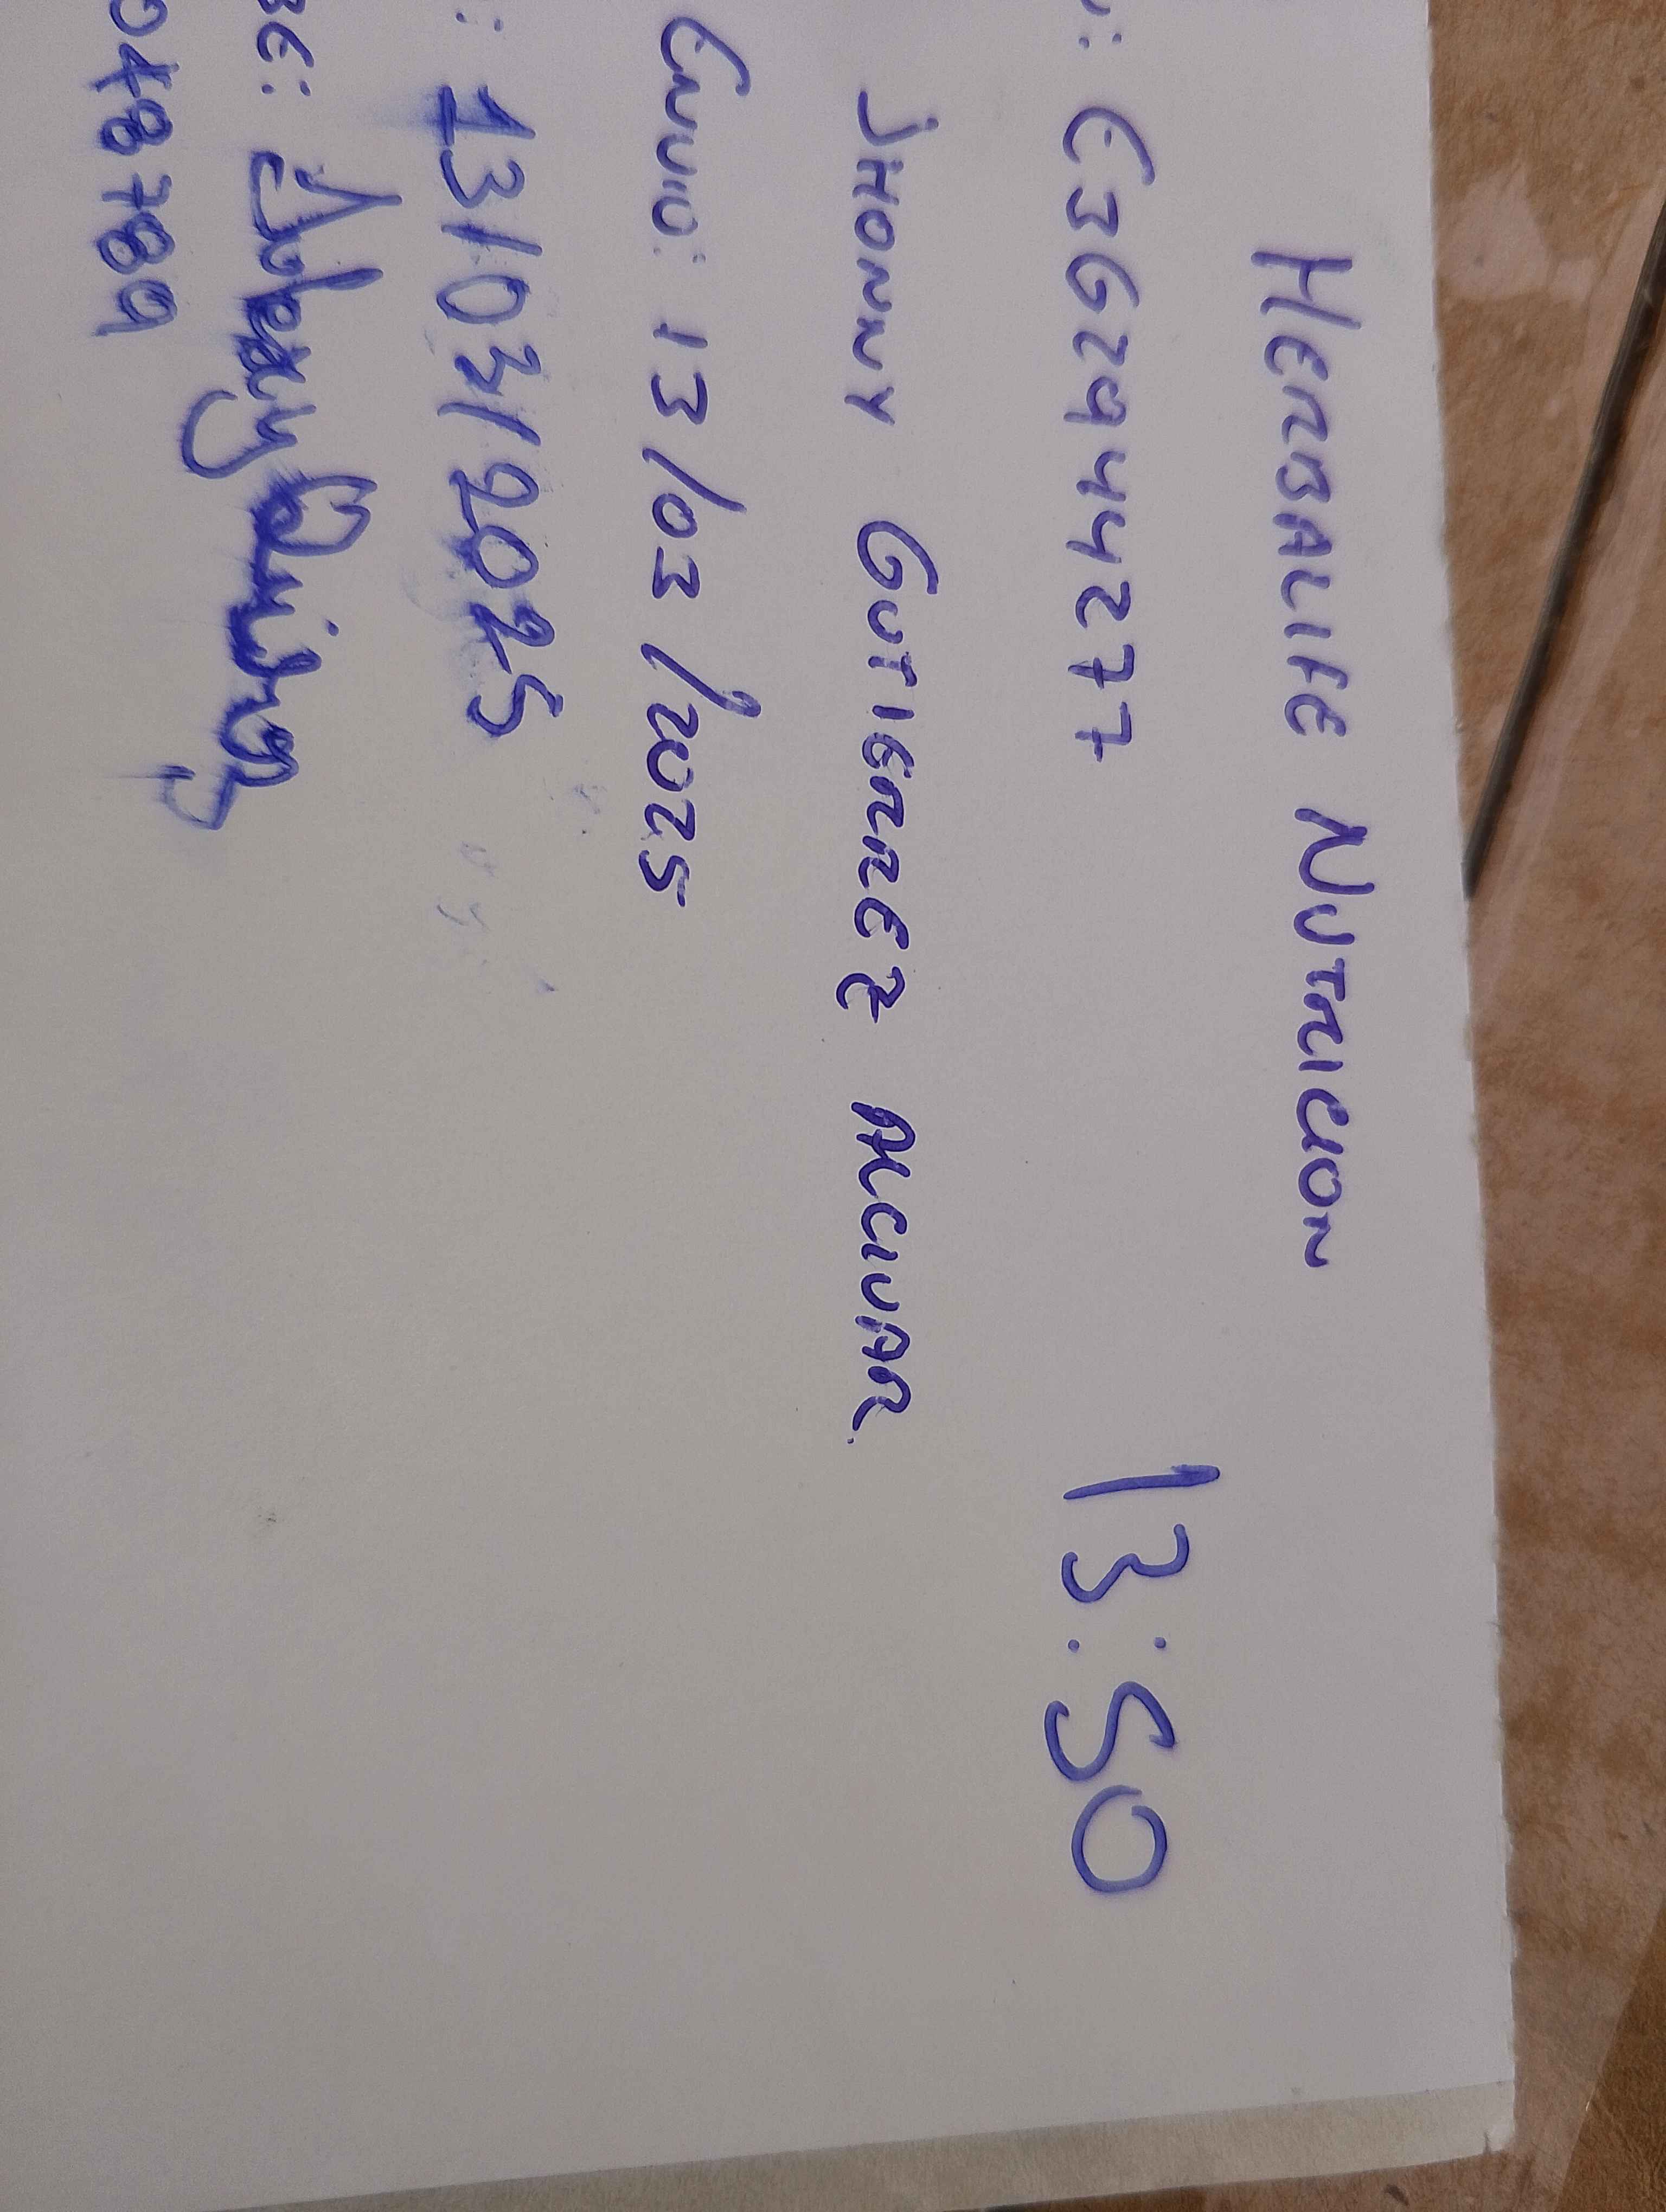 HERBALIFE NUTRICION
: E3G2944277
13:50
JHONNY GUTIERREZ ALCIVAR.
ENVIO: 13/03/2025
: 13/03/2025
BE: Quiroz
048789